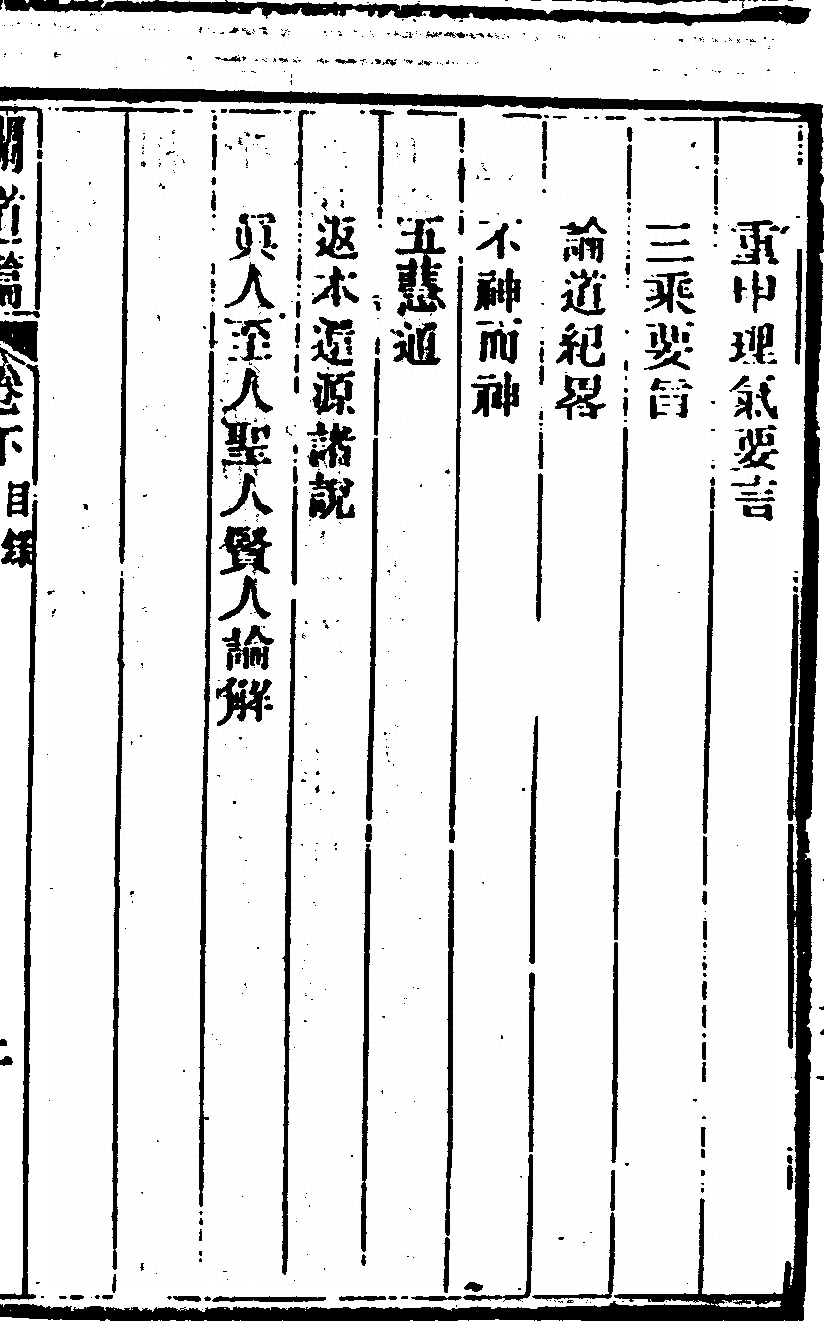 重申理氣要言
三乘要旨
論道紀畧
不神而神
五慧通
返本還源諸說
眞人至人聖人賢人論解
卷下
目錄